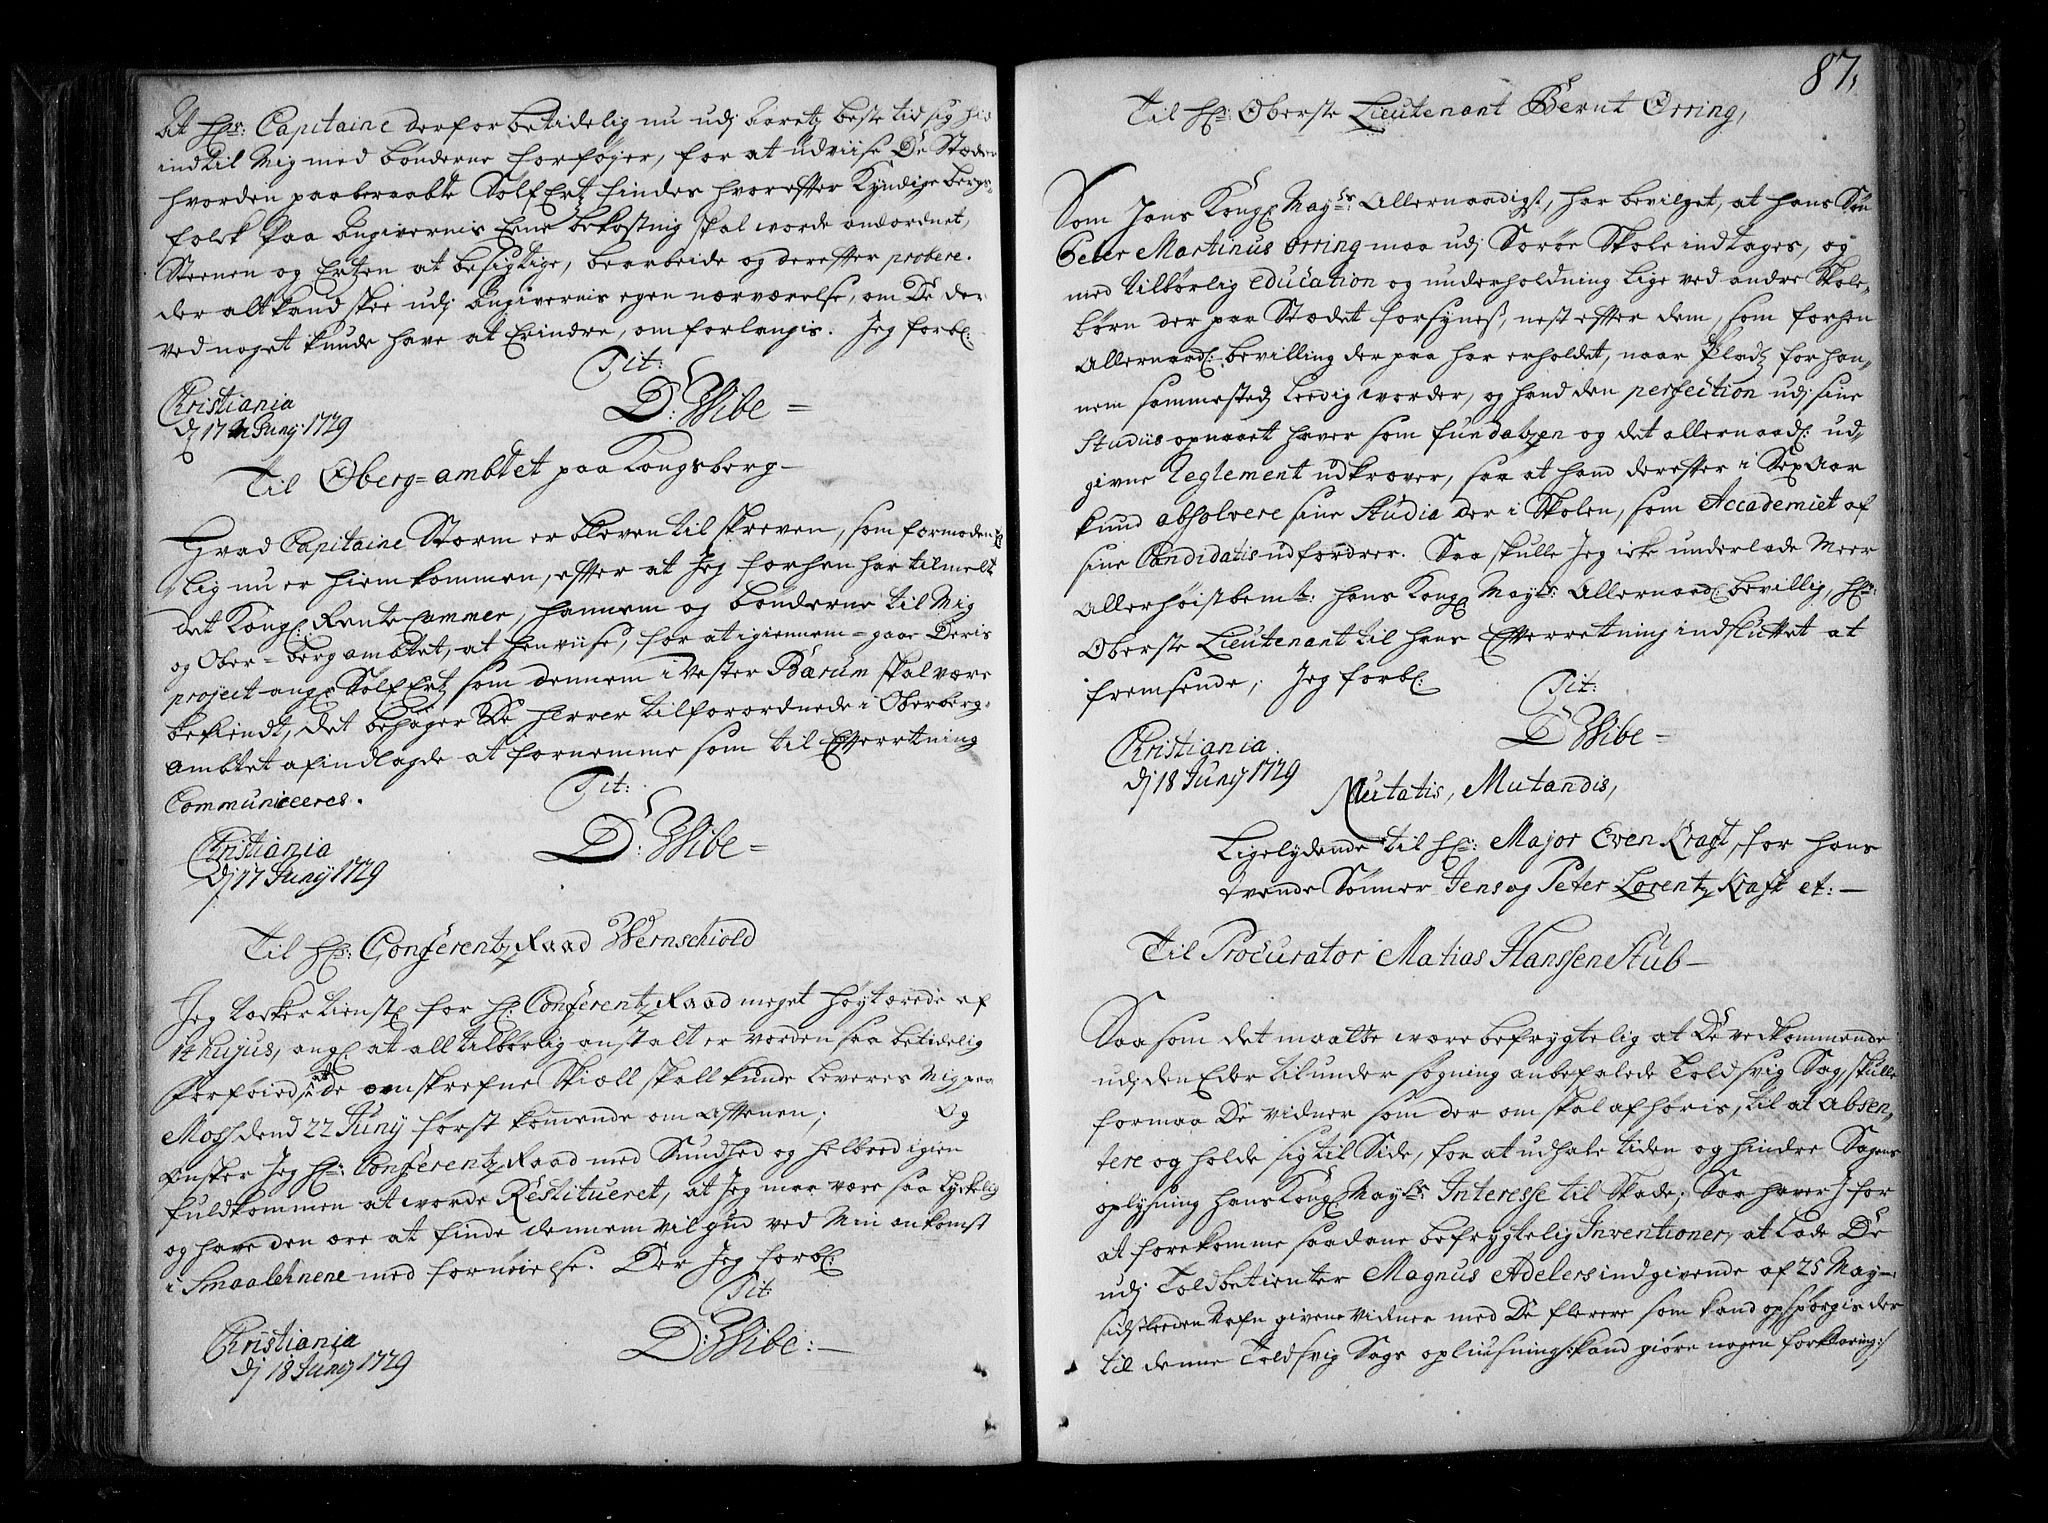 At Hr: Capitaine derfor betidelig nu udj Aaretz beste tid sig hid
indtil Mig med bønderne forføjer, for at udviise De Stæder
hvorden paaberaabte Sølf Ertz findes hvorefter Kyndige bergs-
folck paa Angivernis Egne bekostnig skal worde andordnet,
Steenen og Erten at besigtige, bearbeide og derefter probere.
der alt kand skee udj Angivernis egen nærværelse, om De der
ved noget kunde have at Erindre, om forlangis. Jeg forbl:
Tit:
D: Wibe =
Christiania
dj 17 Juny 1729
Til Øberg=ambtet paa Kongsberg-
Hvad Capitaine Storm er bleven til skreven, som formodent
lig nu er hiemkommen, efter at Jeg forhen har tilmelt
det Kongl: Rente Cammer, hannem og bønderne til Mig
og Ober=bergambtet, at henviise, for at igiennem=gaae Deris
project angl: Sølf Ertz som dennem i Vester Bærum skal være
bekiendt, det behager De Herrer tilforordnede i Oberberg-
Ambtet af indlagde at fornemme som til Efterretning
Communiceeres.
Tit:
D: Wibe =
Christiania
Dj 17 Juny 1729
Til Hr: Conferentz Raad Wernschiold
Jeg tacker tienstl: for Hr: Conferentz Raad meget høytærede af
14 hujus, angl: at all tilbørlig anstalt er vorden saa betidelig
forføied, at de omskrefne Skiøll skall kunde Leveres Mig paa
Moss dend 22 Juny først komende om Aftenen; Og
ønsker Jeg Hr: Conferentz Raad med Sundhed og helbred igien
fuldkommen at worde Restitueret, at Jeg maa være saa Lyckelig
og have den ære at finde dennem vil gud ved Min ankomst
i Smaalehnene med fornøielse. Der Jeg forbl:
Tit
D: Wibe: —
Christiania
dj 18 Juny 1729
87,
Til Hr: Oberste Lieutenant Bernt Orring,
Som Hans Kongl: Mayts: Allernaadigst, har bevilget, at hans Søn
Peter Martinus Orring maa udj Sorøe Skole indtages, og
med tilbørlig education og underholdning lige ved andre Skole-
børn der paa Stædet forsynes, nest efter dem, som forhen
Allernaadl: bevilling der paa har erholdet, naar Pladz for han-
nem sammestedz Leedig worder, og hand den perfection udj sine
Studiis opnaaet haver som fundatzen og det allernaadl: ud-
givne Reglement udkræver, saa at hand derefter i Sex Aar
kund absolvere sine Studia der i Skolen, som Accademiet af
sine Candidatis udfordrer. Saa skulle Jeg icke underlade Meer
Allerhøistbemte: Hans Kongl: Mayts: Allernaadl: bevillig, Hr:
Oberste Lieutenant til hans Efterretning indsluttet at
fremsende, Jeg forbl:
Tit:
D Wibe =
Christiania
dj 18 Juny 1729
Mutatis, Mutandis,
Ligelydende til Hr: Major Even Kraft, for hans
tvende Sønner Jens og Peter Lorentz Kraft et: —
Til Procurator Matias Hanssen Stub —
Saasom det maatte wære befrygtelig at De vedkommende
udj den Eder til under søgning anbefalede Toldsvig Sag, skulle
formaa De vidner som der om skal afhøris, til at absen-
tere og holde sig til Side, for at udhale tiden og hindre Sagens
oplysning Hans Kongl: Mayts: Interesse til Skade; Saa haver I for
at forekomme saadane befrygtelig Inventioner, at Lade De
udj Toldbetienter Magnus Adelers indgivende af 25 May
sidstleeden Nafn givene vidner med De fleere som kand opspørgis der
til denne Toldsvig Sags opliusning: kand giøre nogen forklaring:/